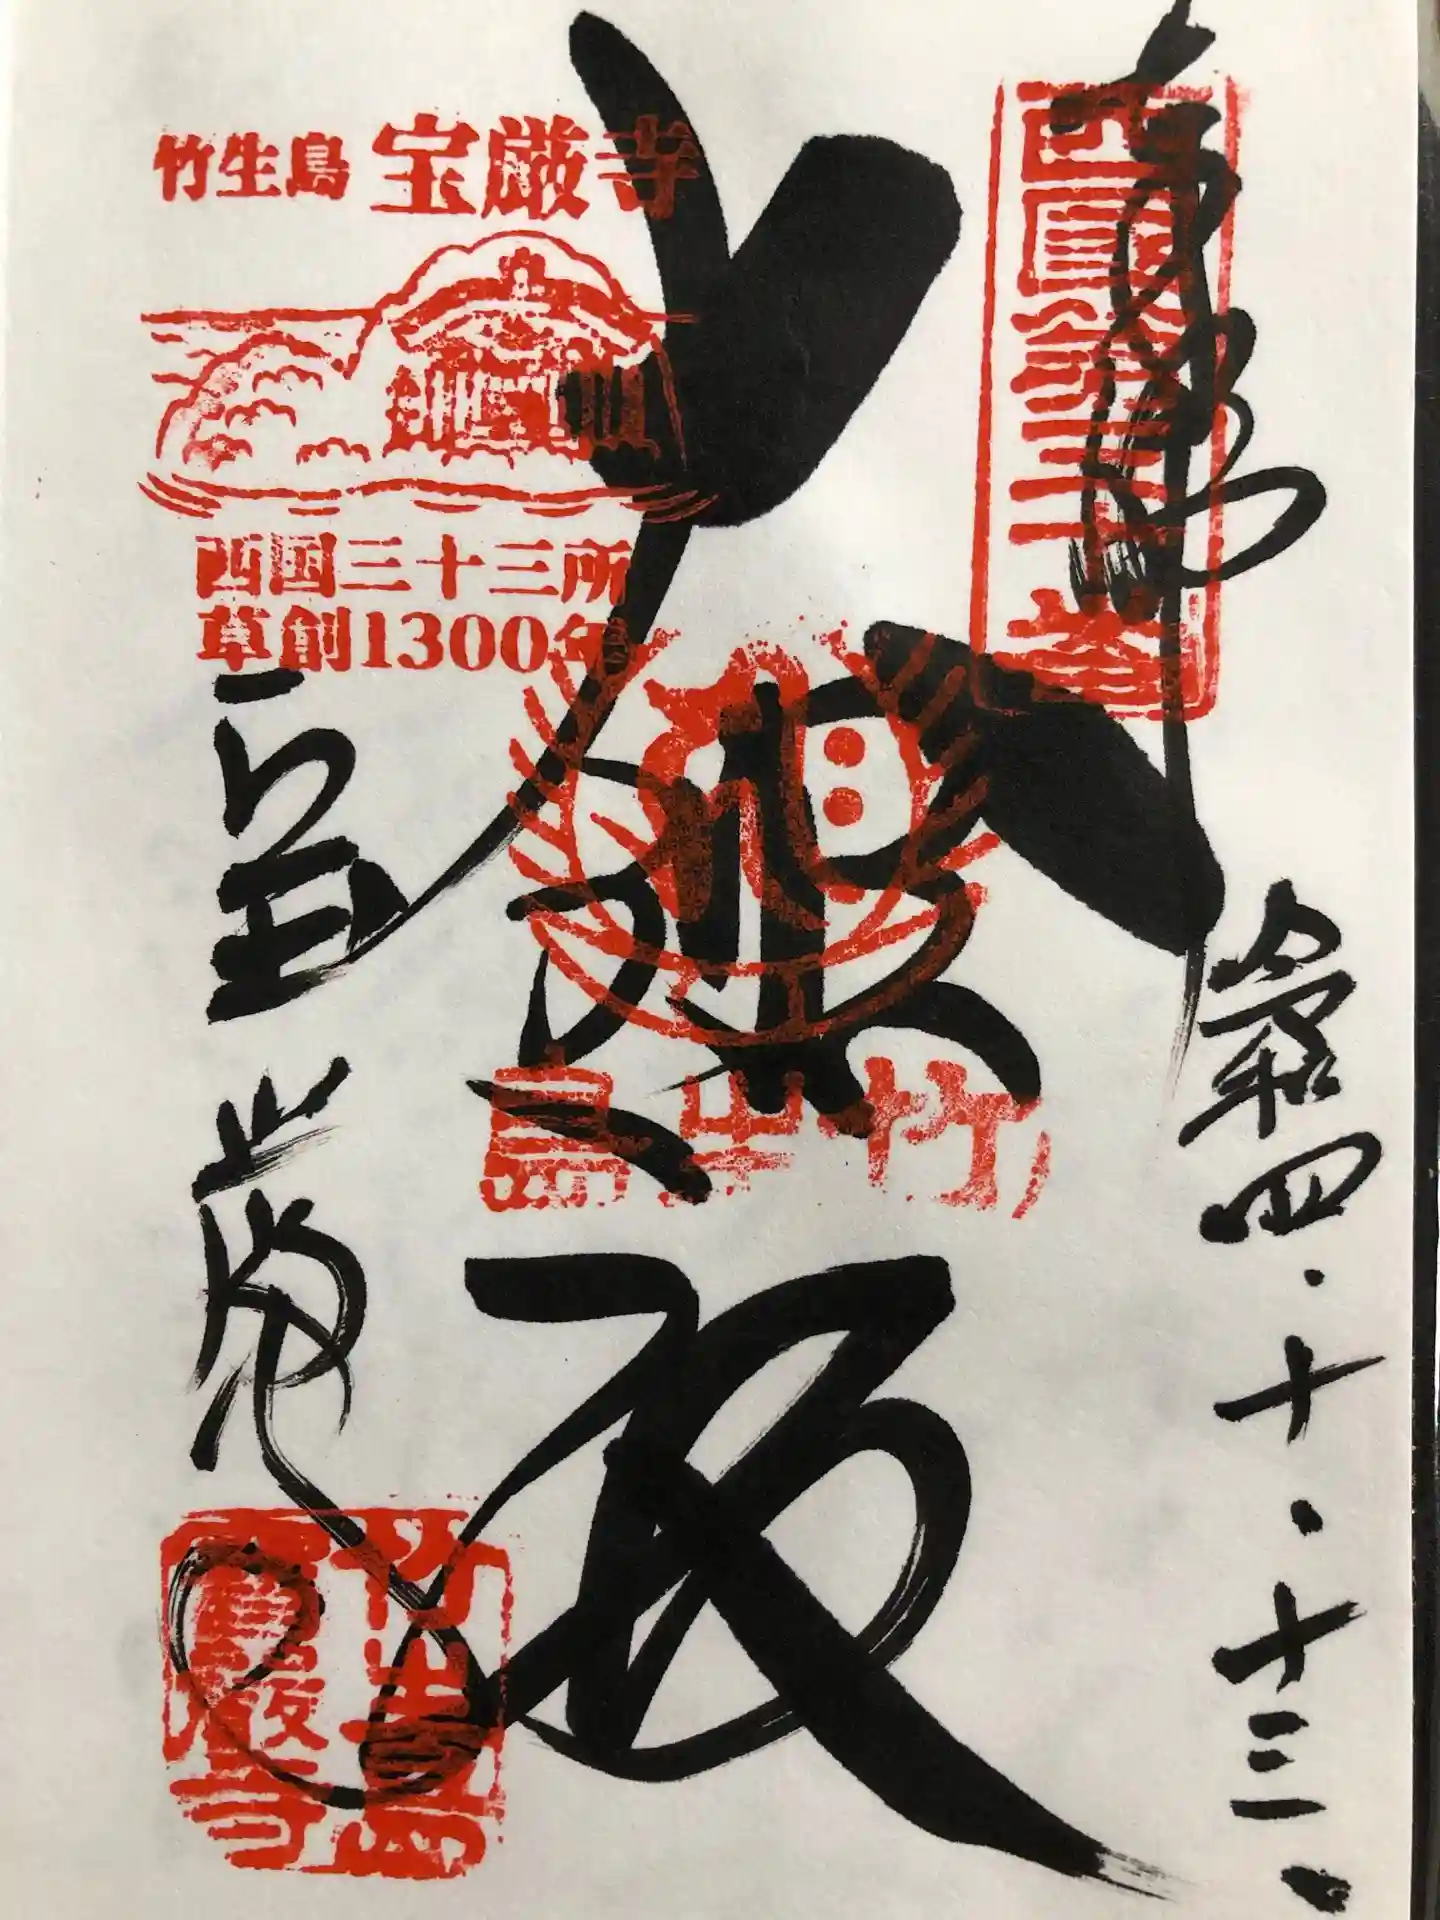 奉拝
西國第三十番
令和四・十・十三・
大悲殿
竹生島
竹生島 宝厳寺
西国三十三所
草創1300年
宝厳寺
竹生島
寶嚴寺